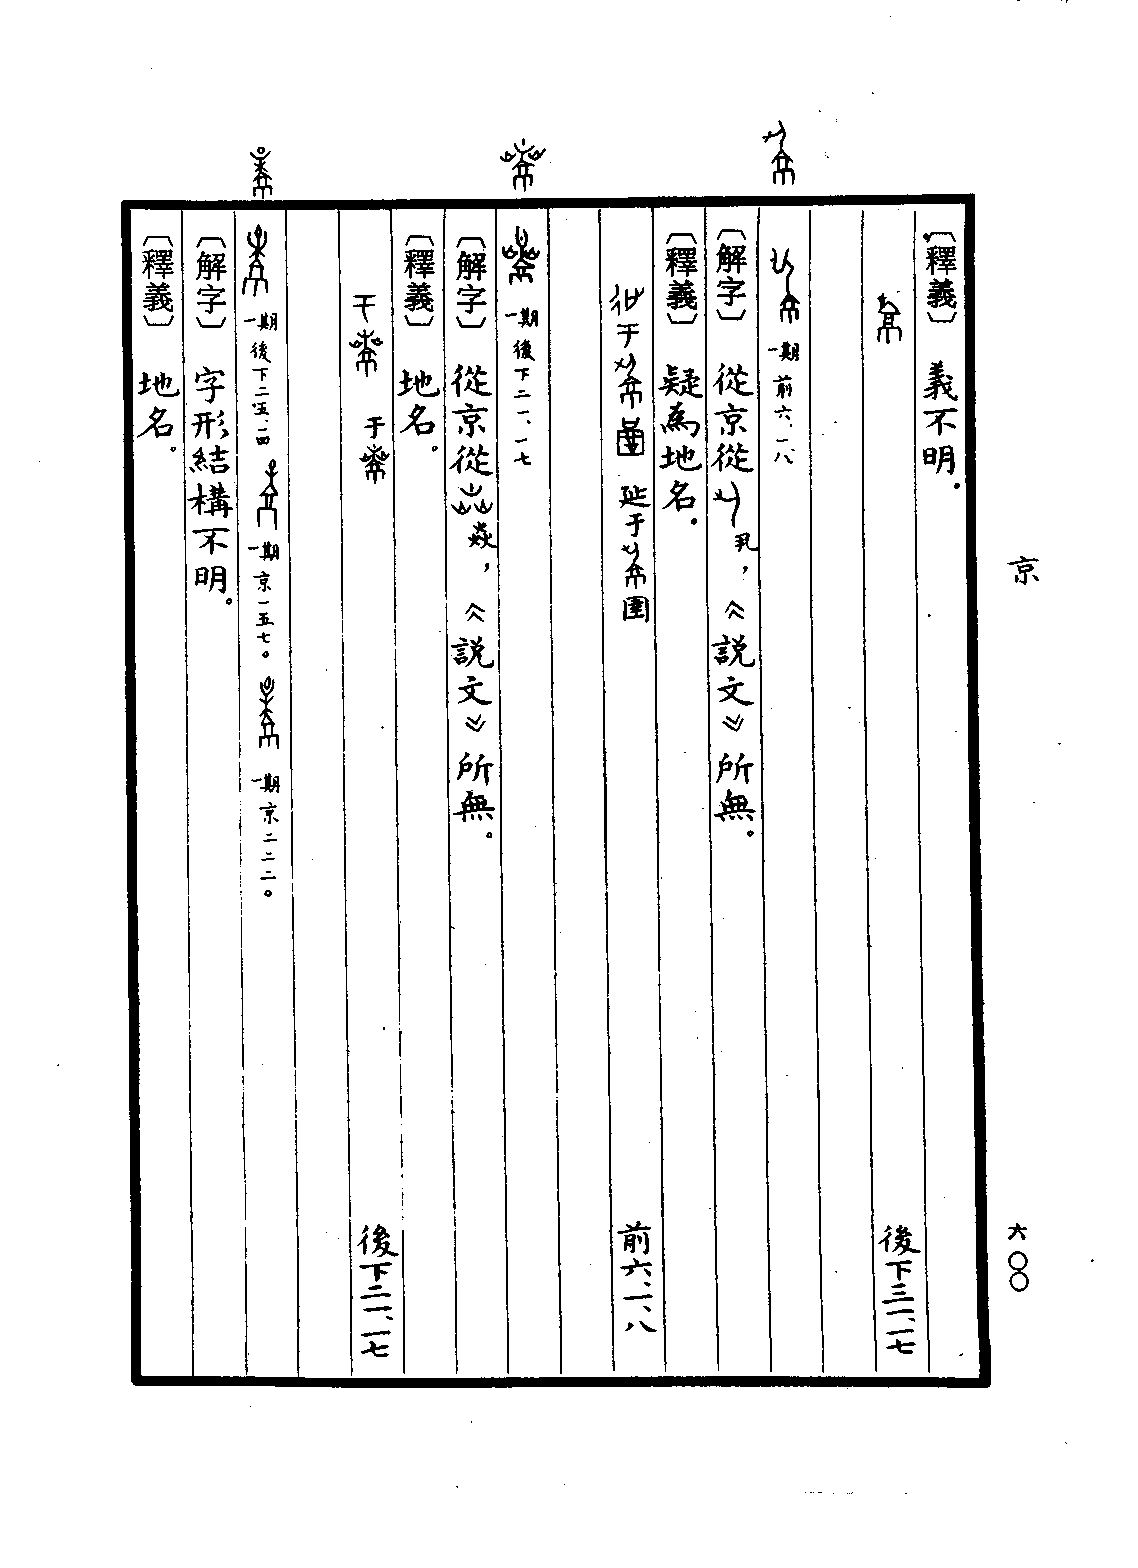 京
六〇〇
〔釋義〕 義不明。
後下三一、一七
一期 前六、一八、
〔解字〕 從京從 丮，《説文》所無。
〔釋義〕 疑為地名。
于 圃 延于 圍 前六、一、八
一期 後下二一、一七
〔解字〕 從京從 焱，《説文》所無。
〔釋義〕 地名。
于 于 後下二一、一七
一期 後下二五、一四 一期 京一五七。 一期 京二二二。
〔解字〕 字形結構不明。
〔釋義〕 地名。